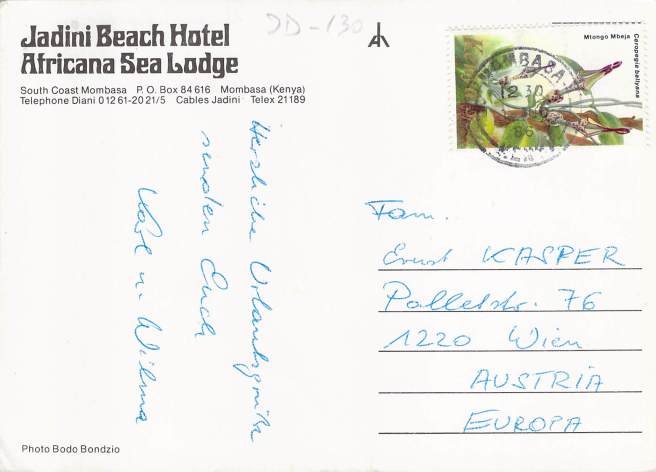 Jadini Beach Hotel
Africana Sea Lodge
South Coast Mombasa P. O. Box 84616 Mombasa (Kenya)
Telephone Diani 01261-2021/5 Cables Jadini Telex 21189
JD-130
Mtongo Mbeja
Ceropegia ballyana
MOMBASA
12 30
86
Herzliche Urlaubsgrüße
senden Euch
Karl u. Wilma
Fam.
Ernst KASPER
1220 Wien
AUSTRIA
EUROPA
Photo Bodo Bondzio